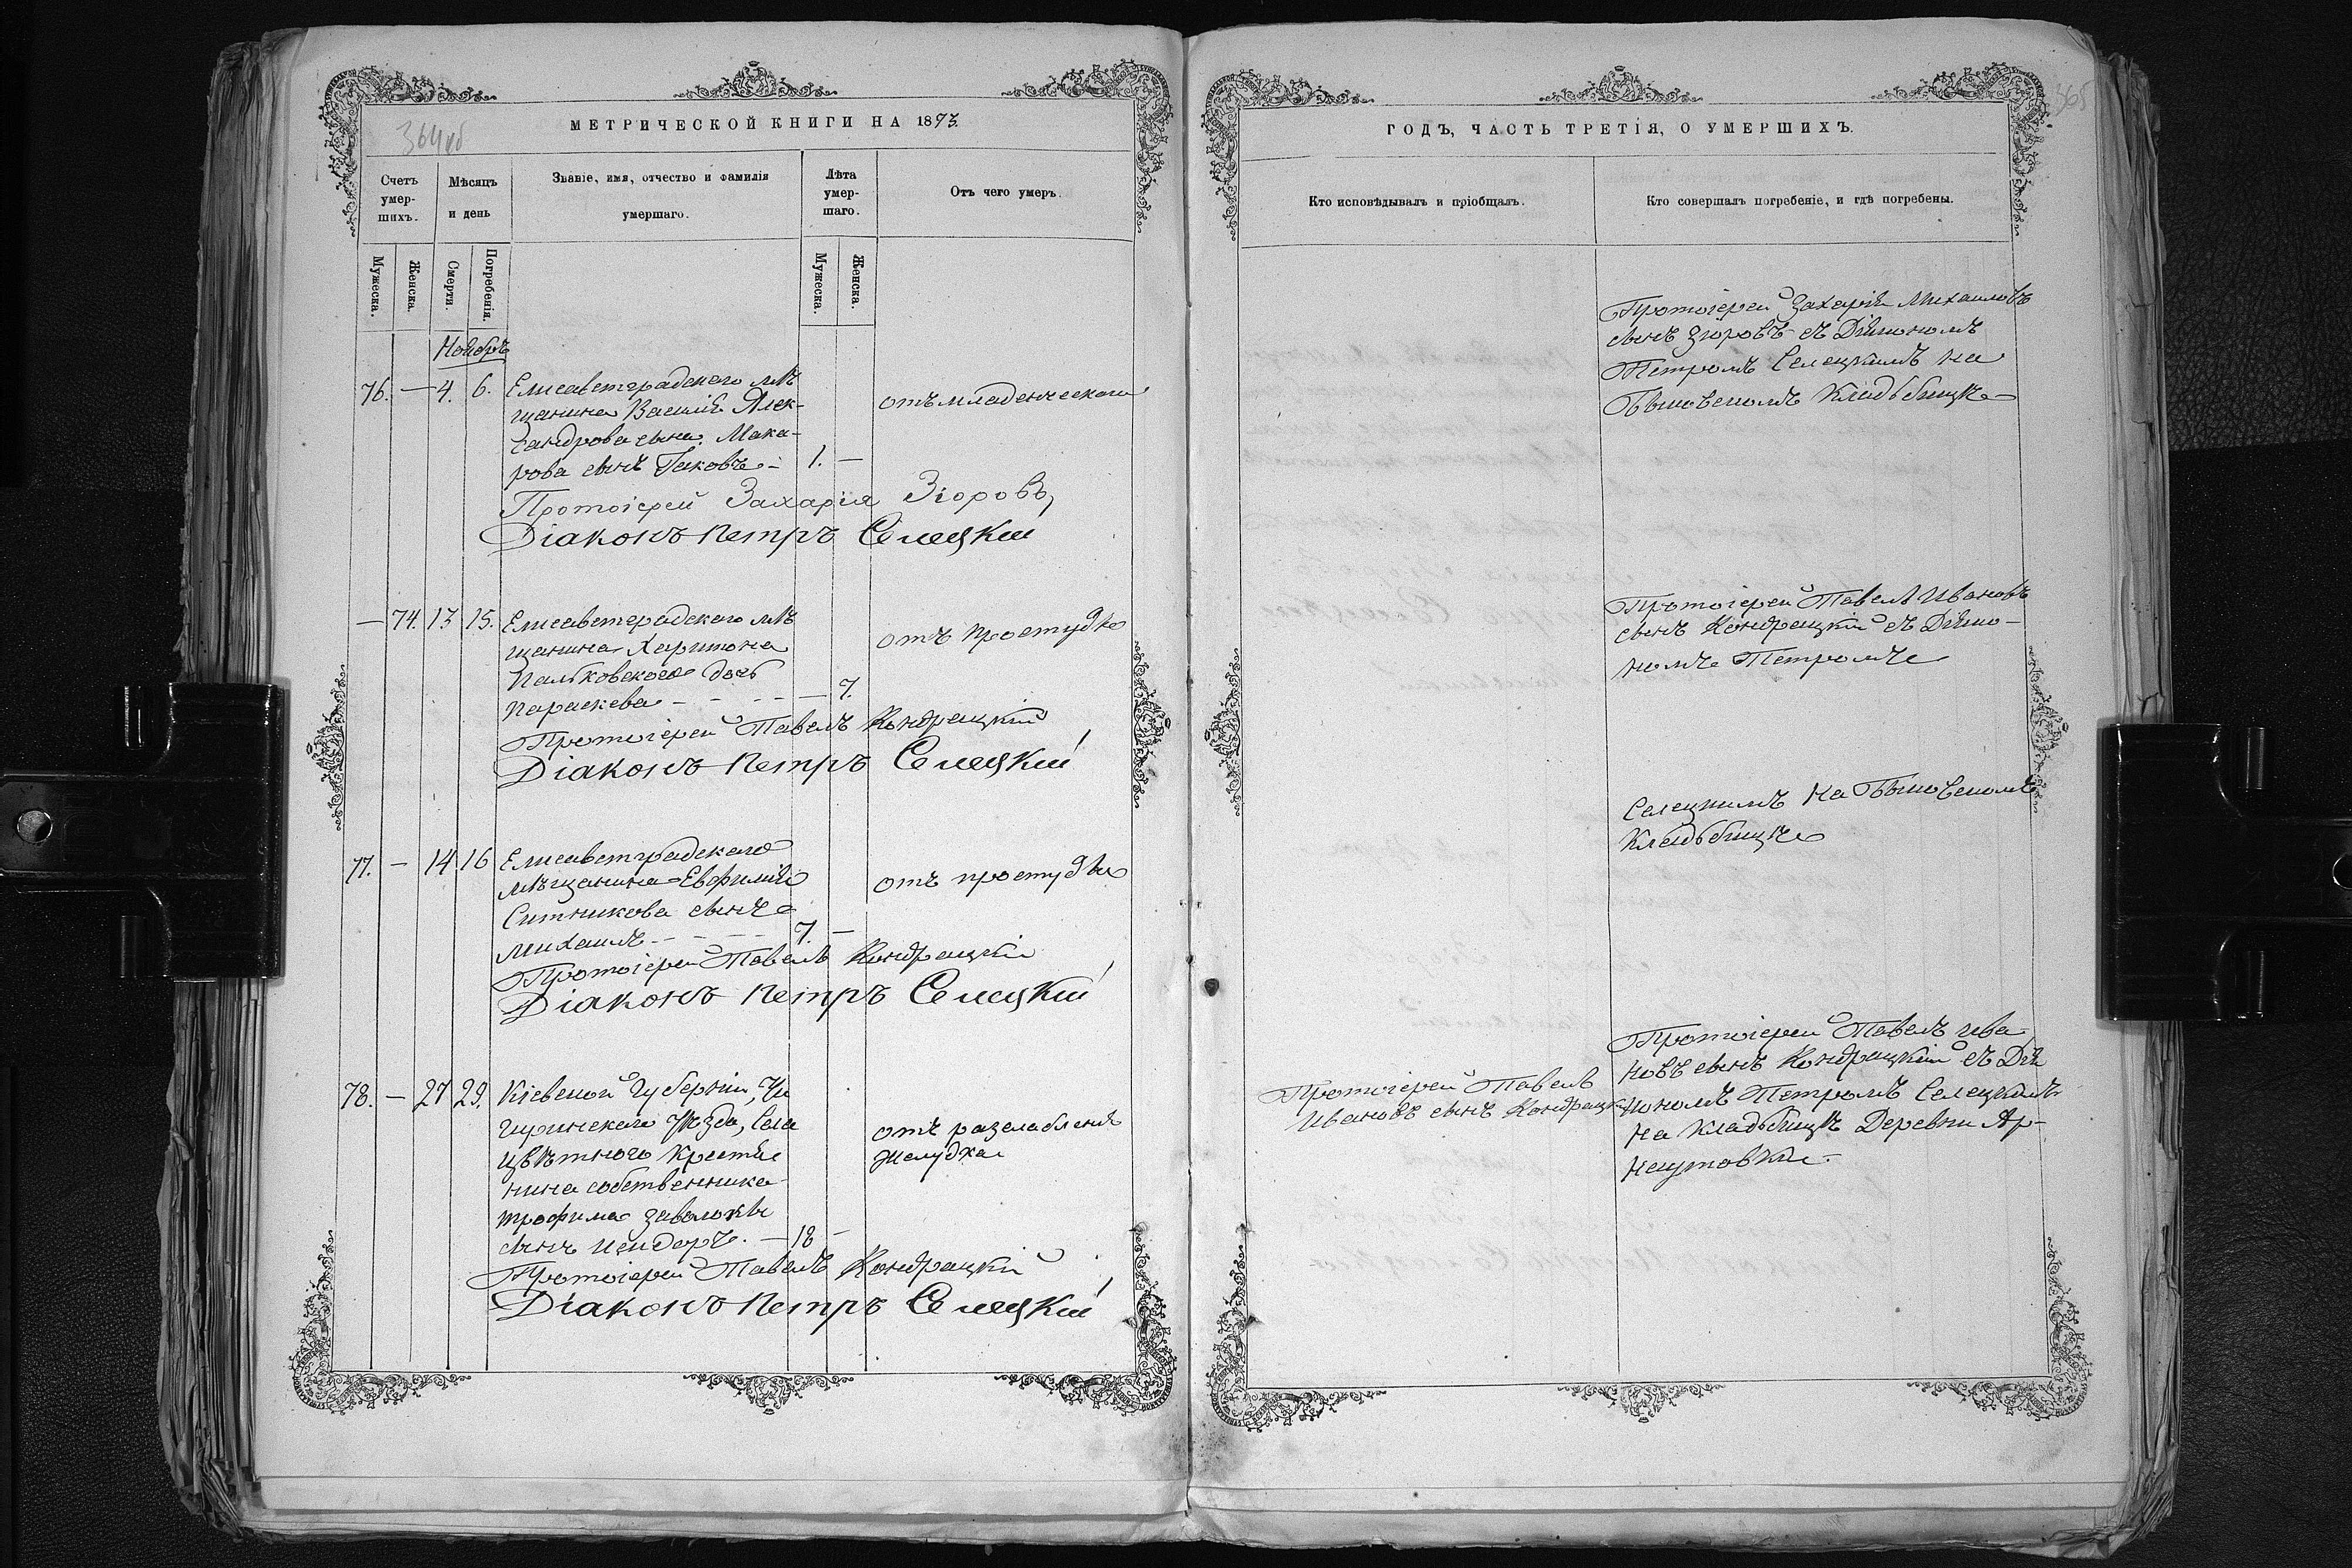 364 об
МЕТРИЧЕСКОЙ КНИГИ НА 1873.
Счетъ умер-шихъ.
Мѣсяцъ и день
Званіе, имя, отчество и фамилія умершаго.
Лѣта умер-шаго.
Отъ чего умеръ.
Мужеска.
Женска.
Смерти.
Погребенія.
Мужеска.
Женска.
Ноябрь
76. — 4. 6. Елисаветградскаго мѣ
щанина Василія Алек-
сандрова сына Мака-
рова сынъ Іаковъ - 1. —
отъ младенческаго
Протоіерей Захарія Зіоровъ,
Діаконъ Петръ Селецкій
— 74. 13 15. Елисаветградскаго мѣ
щанина Харитона
Пальковскаго дочь
Параскева - - - — 7.
отъ простуды
Протоіерей Павелъ Кондрацкій
Діаконъ Петръ Селецкій
77. — 14 16 Елисаветградскаго
мѣщанина Евфимія
Ситникова сынъ
Михаилъ - - - - 7. —
отъ простуды
Протоіерей Павелъ Кондрацкій
Діаконъ Петръ Селецкій
78. — 27 29. Кіевской Губерніи, Чи
гиринскаго Уѣзда, Села
Цвѣтного крестья
нина собственника
Трофима Заволоки
сынъ Исидоръ. — 18 —
отъ разслабленія
желудка
Протоіерей Павелъ Кондрацкій
Діаконъ Петръ Селецкій
365
ГОДЪ, ЧАСТЬ ТРЕТІЯ, О УМЕРШИХЪ.
Кто исповѣдывалъ и пріобщалъ.
Кто совершалъ погребеніе, и гдѣ погребены.
Протоіерей Захарія Михаиловъ
сынъ Зіоровъ съ Діакономъ
Петромъ Селецкимъ на
Быковскомъ Кладбищѣ
Протоіерей Павелъ Ивановъ
сынъ Кондрацкій съ Діако-
номъ Петромъ
Селецкимъ на Быковскомъ
Кладбищѣ
Протоіерей Павелъ
Ивановъ сынъ Кондрацкій
Протоіерей Павелъ Ива
новъ сынъ Кондрацкій съ Діа
кономъ Петромъ Селецкимъ
на кладбищѣ Деревни Ар-
наутовки.